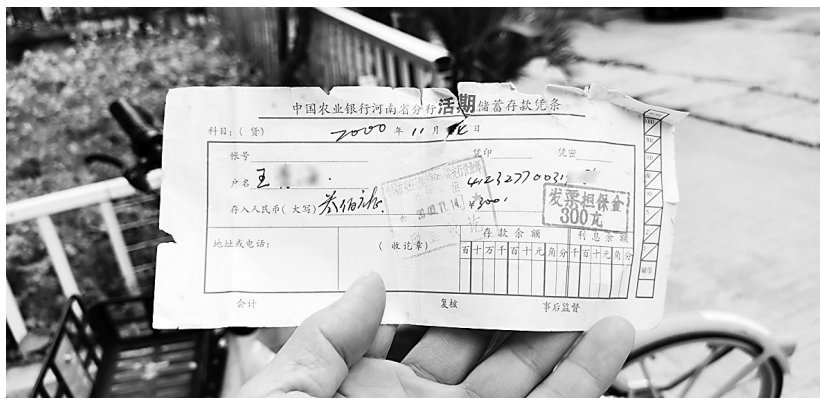 中国农业银行河南省分行活期储蓄存款凭条
科目：(贷) 2000 年 11 月 14 日
帐号 凭印 凭密
户名 王 4123277003
存入人民币(大写) 叁佰元正 ¥300
发票担保金
300元
20.02.11.14.
地址或电话： (收讫章) 存款余额 利息余额
百十万千百十元角分 千百十元角分
会计 复核 事后监督